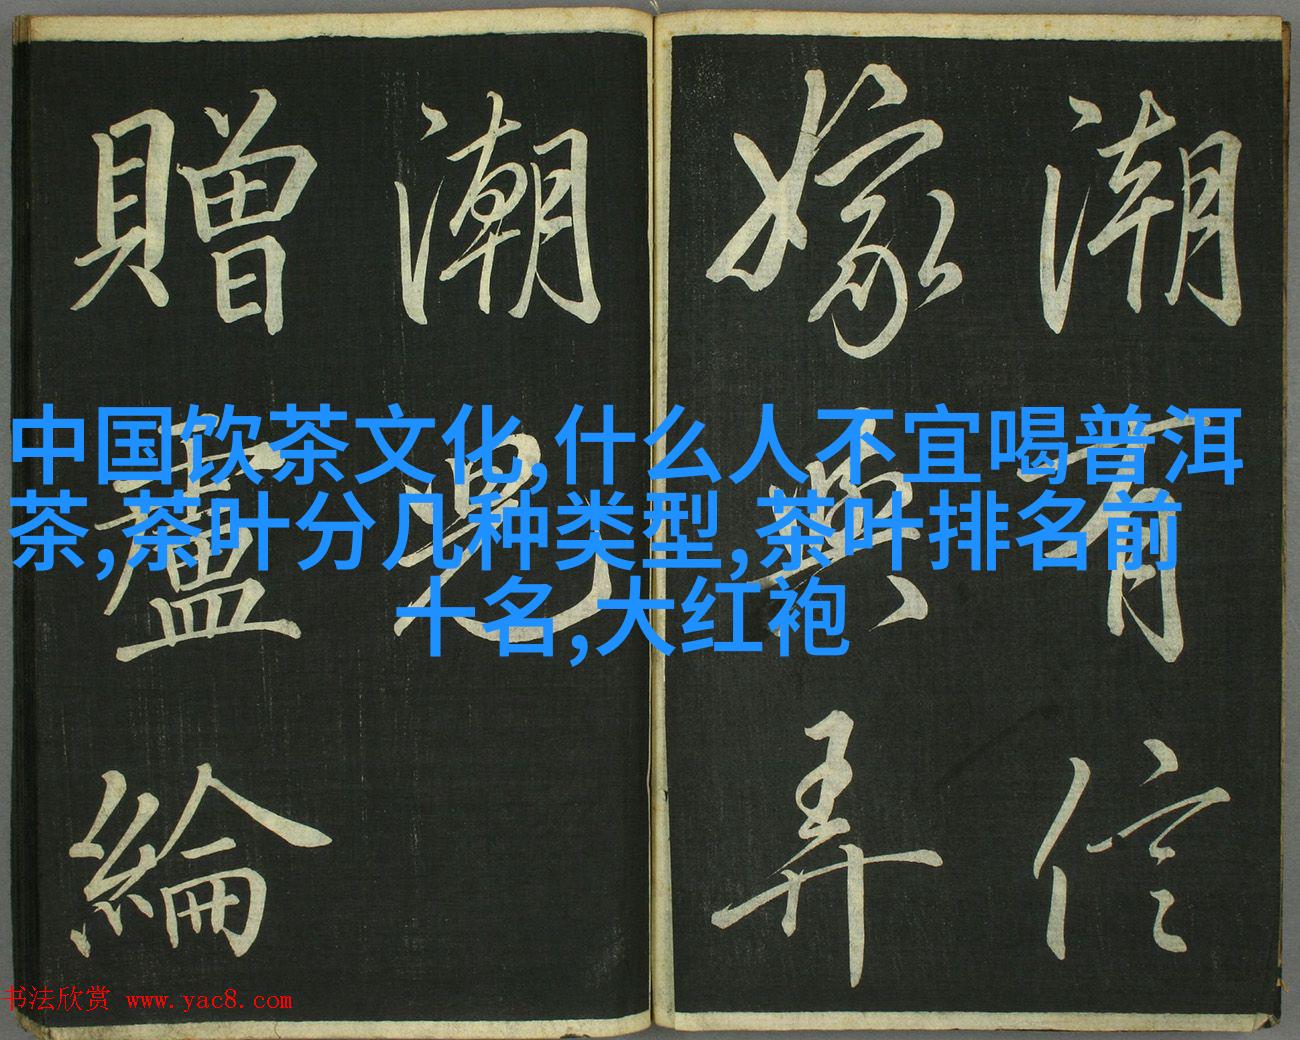 潮有信
嫁與弄
潮兒
贈盧綸
中国饮茶文化,什么人不宜喝普洱
茶,茶叶分几种类型,茶叶排名前
十名,大红袍
书法欣赏 www.yac8.com